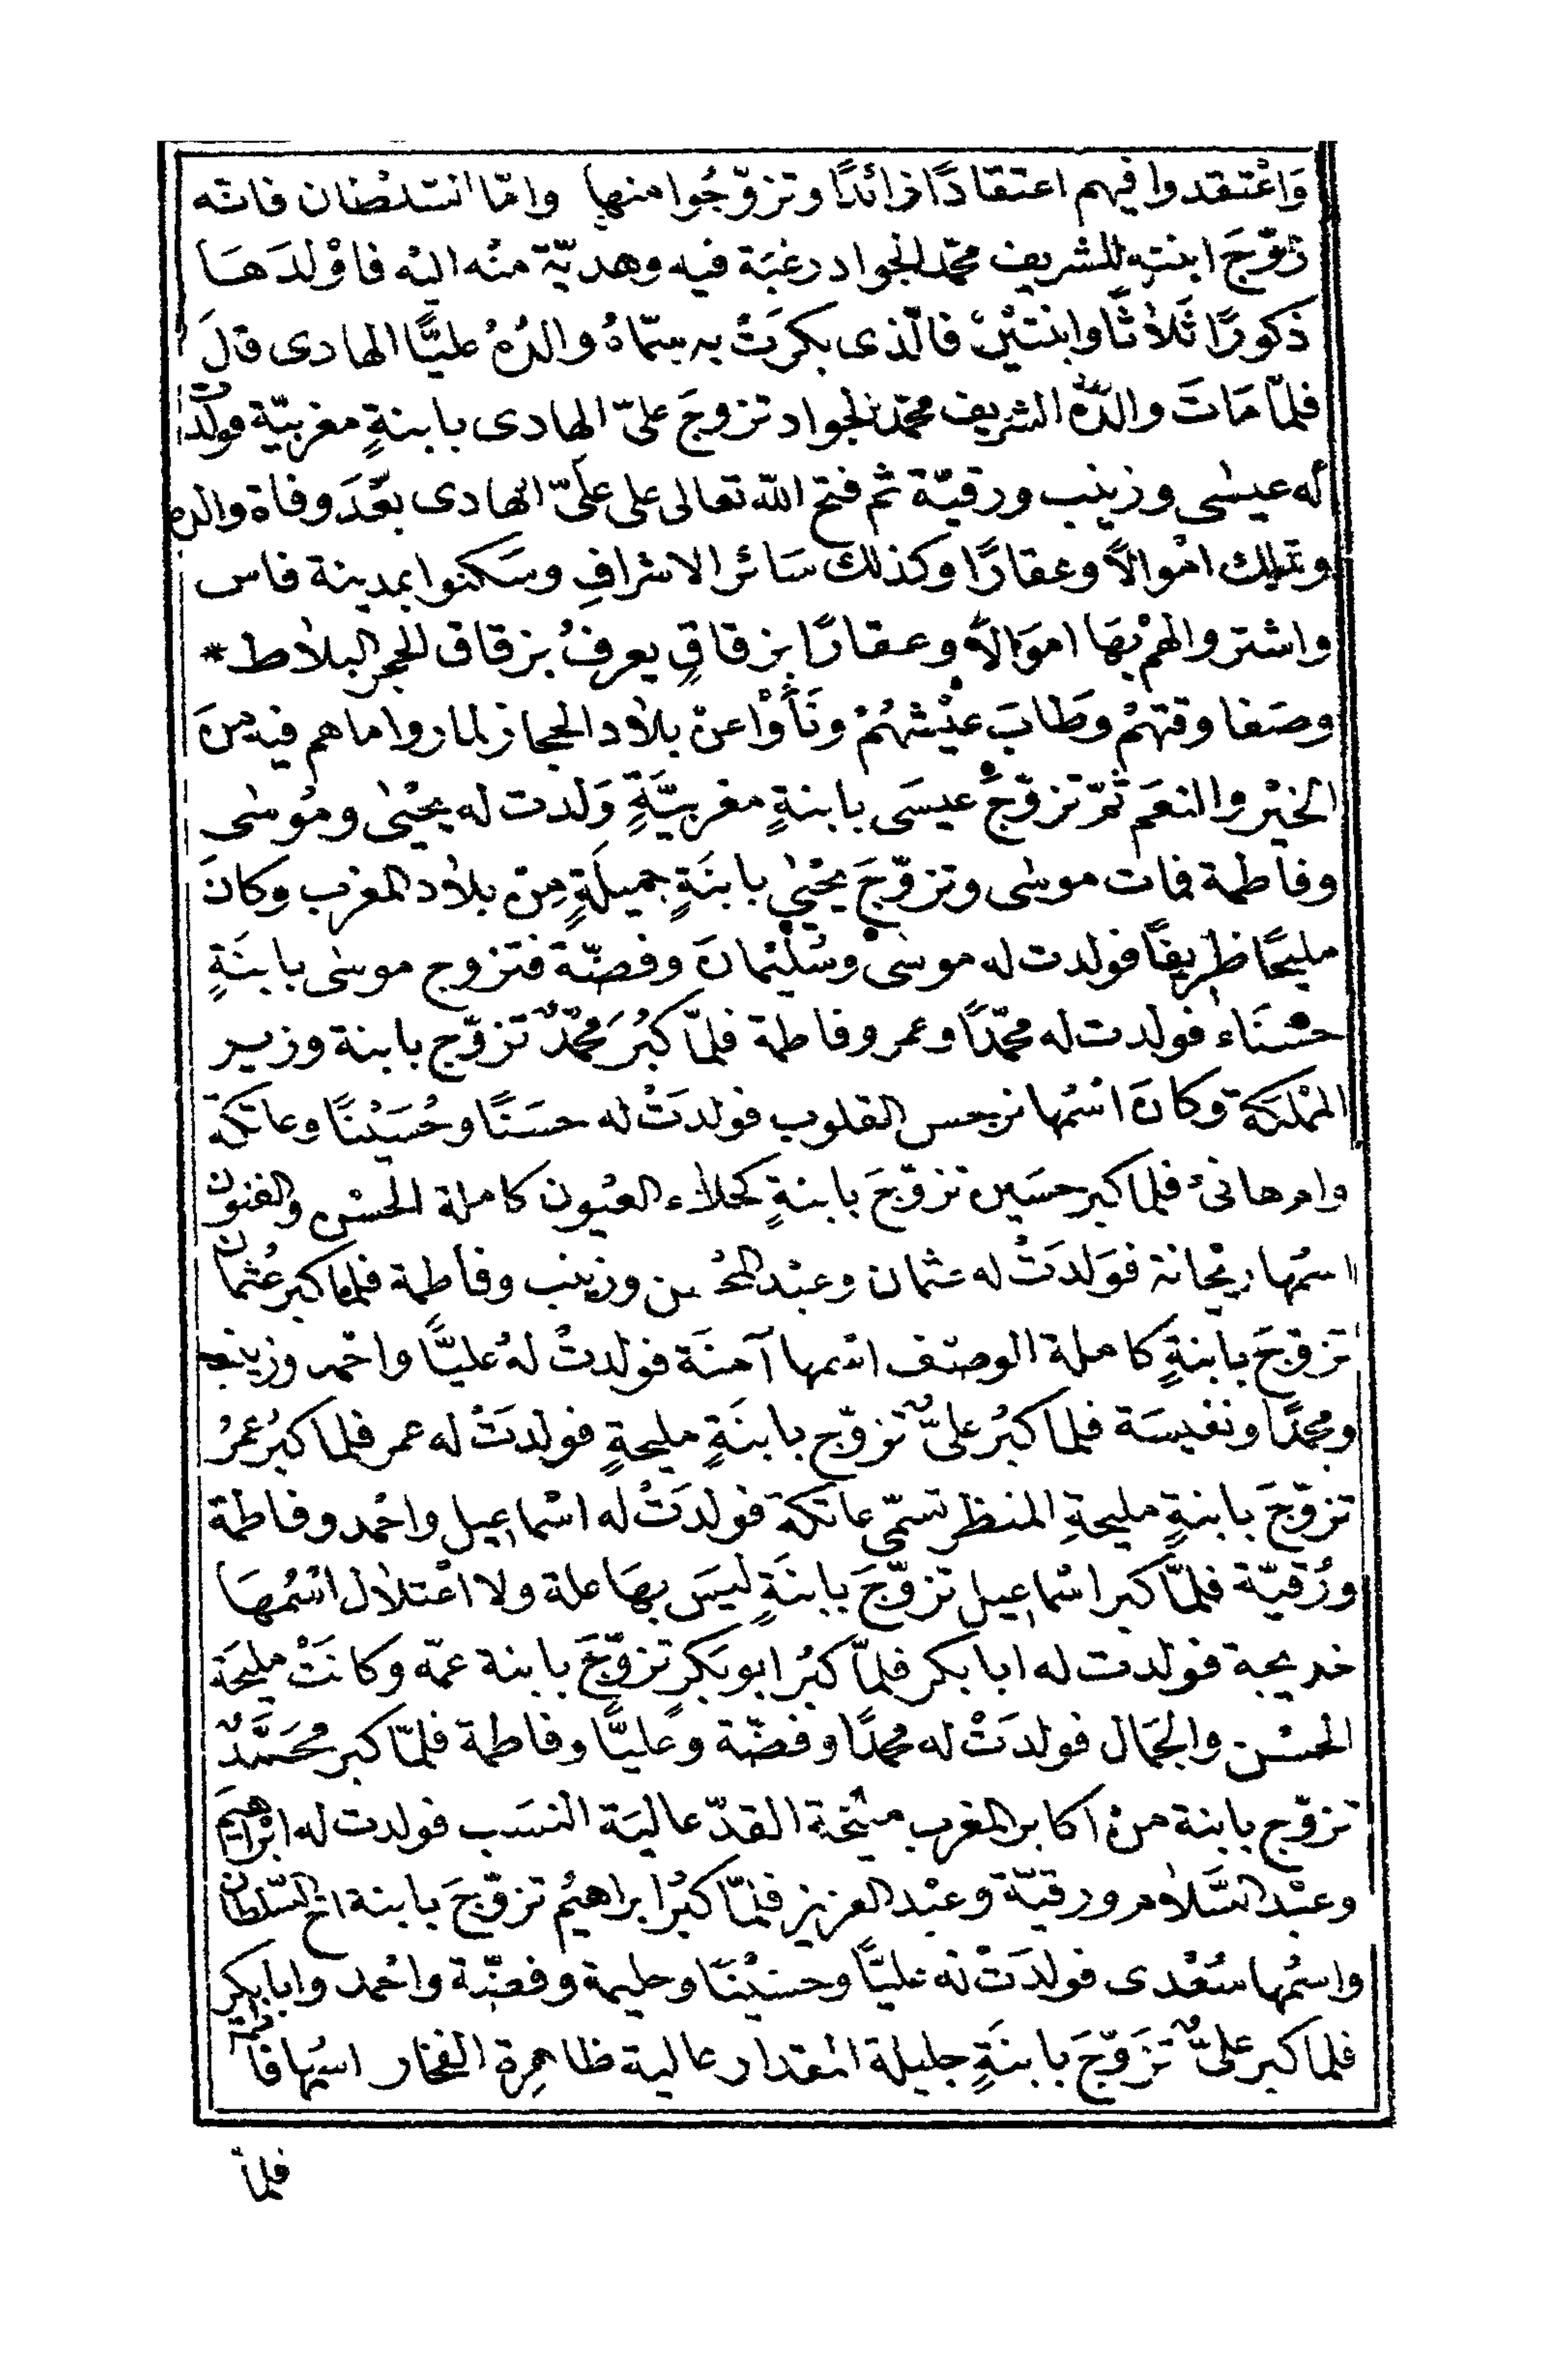 وَاعْتقدوا فيهم اعتقادًا زائدًا وتزوّجُوا منها وامّا السّلطان فانّه
زوّجَ ابنته للشريف محمّد الجواد رغبَة فيه وهديّة منْه اليْه فاوْلدَهَا
ذكورًا ثَلاثًا وابنتيْنْ فالّذى بكرَتْ به سمّاهُ والدُهُ عليًّا الهادى قالَ
فلمّا مَاتَ والدُه الشريف محمّد الجواد تزوجَ علىّ الهادى بابنةٍ مغربيّة فولدت
له عيسٰى وزينب ورقيّة ثم فتح اللّه تعالى على علىّ الهادى بعْدَ وفاة والده
وتملك امْوالاً وعقارًا وكذلك سَائر الاشرافِ وسَكنوا بمدينة فاس
واشتروا لهمْ بهَا امْوَالاً وعقارًا بزقاقٍ يعرفُ بزقاق الحجر البلاط *
وصَفا وقتهمْ وطَابَ عيْشهُمْ ونَأَوْا عنْ بلاد الحجاز لما روا ما هم فيه منَ
الخيْر والنعَم ثمّ تزوّجَ عيسَى بابنةٍ مغربيَّةٍ وَلدت له يحْيٰى ومُوسٰى
وفاطمة فمات موسٰى وتزوّجَ يحْيٰي بابنَةٍ جميلَةٍ مِنْ بلاد المغرب وكانَ
مليحًا ظريفًا فولدت له موسىٰ وسُليْمانَ وفضّة فتزوج موسٰى بابنَةٍ
حسْنَاء فولدت له محمّدًا وعمر وفاطمة فلمّا كبُرَ محمّدٌ تزوّج بابنة وزير
المْلكة وكانَ اسْمُها نرجس القلوب فولدَتْ له حسَنًا وحُسَيْنًا وعاتكة
وام هانئ فلما كبر حسَين تزوّجَ بابنةٍ كحلاء العيُون كاملة الحسْن والفنون
اسمُها ريْحانة فوَلدَتْ له عثمان وعبْد المحْسن وزينب وفاطمة فلما كبر عُثمان
تزوّجَ بابنةٍ كاملة الوصْف اسْمها آمنَة فولدتْ لهُ عليًّا واحْمد وزينب
ومحمدًا ونفيسَة فلما كبُر علىٌّ تزوّج بابنَةٍ مليحةٍ فولدَتْ له عمر فلما كبُرَ عمرُ
تزوّجَ بابنةٍ مليحةِ المنظر تسمّى عاتكة فولدَتْ له اسْماعيل واحْمد وفاطمة
ورُقيّة فلمَّا كبر اسْماعيل تزوّجَ بابنَةٍ ليسَ بهَا علة ولا اعْتلال اسْمُهَا
خديجة فولدت له ابا بكر فلمّا كبُر ابو بَكرٍ تزوّجَ بابنة عمّه وكانَتْ مليحَة
الحسْن والجَمال فولدَتْ له محمدًا وفضّة وعليًّا وفاطمة فلمّا كبر محَمَّدٌ
تزوّج بابنة منْ اكابر المغرب القدّ عاليَة النسَب فولدت له ابْراهيم
وعبْد السَّلام ورقيّة وعبْد العزيز فلمّا كبُر ابراهيُم تزوّجَ بابنة اخ السّلطان
واسْمُها سُعْدى فولدَتْ له عليًّا وحسيْنًا وحليمة وفضّة واحْمد وابا بكر
فلما كبر علىٌّ تزَوّجَ بابنَةٍ جليلة المقدار عالية ظاهِرة الفخار اسمها فاطمة
فلما